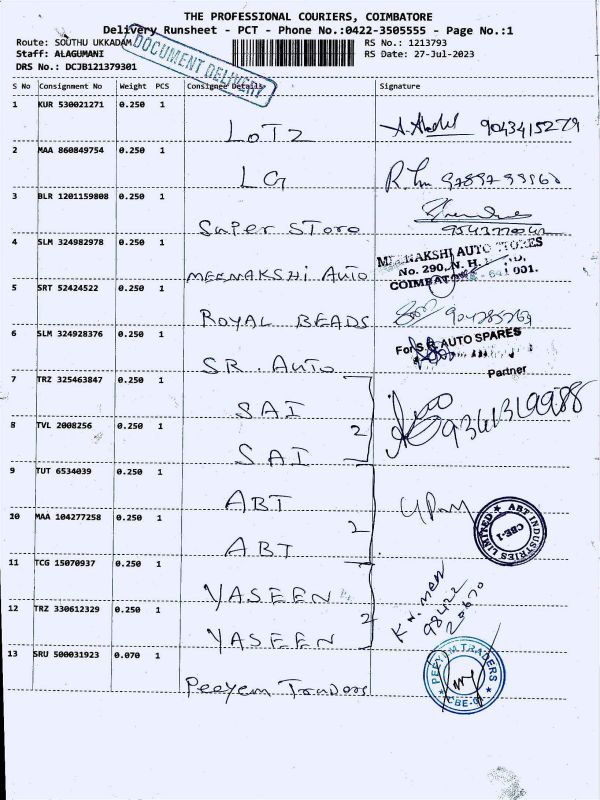 THE PROFESSIONAL COURIERS, COIMBATORE
Delivery Runsheet - PCT - Phone No.:0422-3505555 - Page No.:1
Route: SOUTHU UKKADAM
RS No.: 1213793
Staff: ALAGUMANI
RS Date: 27-Jul-2023
DRS No.: DCJB121379301
DOCUMENT DELIVERY
S No Consignment No Weight PCS Consignee Details Signature
1 KUR 530021271 0.250 1
LOTZ A. Abdul 9043415279
2 MAA 860849754 0.250 1
LG
3 BLR 1201159808 0.250 1
Super Store
4 SLM 324982978 0.250 1
MEENAKSHI Auto
MEENAKSHI AUTO STORES
No. 290, N. H.
COIMBATORE - 641 001.
5 SRT 52424522 0.250 1
ROYAL BEADS
6 SLM 324928376 0.250 1
S.R. Auto
For S.R. AUTO SPARES
Partner
7 TRZ 325463847 0.250 1
SAI 9361319988
8 TVL 2008256 0.250 1
2
SAI
9 TUT 6534039 0.250 1
ABT
ABT INDUSTRIES LIMITED
CBE-1
10 MAA 104277258 0.250 1
2
ABT
11 TCG 15070937 0.250 1
YASEEN
12 TRZ 330612329 0.250 1
2
YASEEN
13 SRU 500031923 0.070 1
Peeyem Traders
PEEYEM TRADERS
CBE-